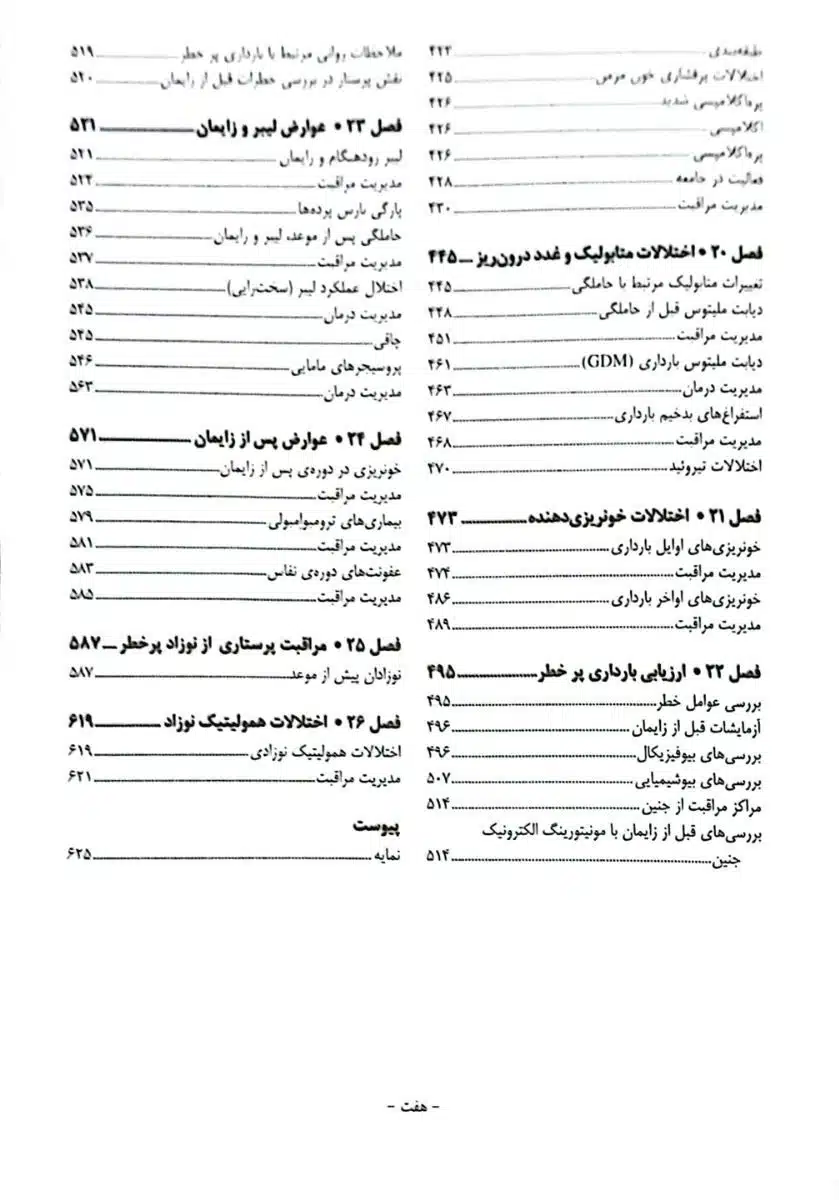 طبقه‌بندی ۴۲۲
اختلالات پرفشاری خون مزمن ۴۲۵
پره‌اکلامپسی شدید ۴۲۶
اکلامپسی ۴۲۶
پره‌اکلامپسی ۴۲۶
فعالیت در جامعه ۴۲۸
مدیریت مراقبت ۴۳۰
فصل ۲۰ • اختلالات متابولیک و غدد درون‌ریز ۴۴۵
تغییرات متابولیک مرتبط با حاملگی ۴۴۵
دیابت ملیتوس قبل از حاملگی ۴۴۸
مدیریت مراقبت ۴۵۱
دیابت ملیتوس بارداری (GDM) ۴۶۱
مدیریت درمان ۴۶۳
استفراغ‌های بدخیم بارداری ۴۶۷
مدیریت مراقبت ۴۶۸
اختلالات تیروئید ۴۷۰
فصل ۲۱ • اختلالات خونریزی‌دهنده ۴۷۳
خونریزی‌های اوایل بارداری ۴۷۳
مدیریت مراقبت ۴۷۴
خونریزی‌های اواخر بارداری ۴۸۶
مدیریت مراقبت ۴۸۹
فصل ۲۲ • ارزیابی بارداری پر خطر ۴۹۵
بررسی عوامل خطر ۴۹۵
آزمایشات قبل از زایمان ۴۹۶
بررسی‌های بیوفیزیکال ۴۹۶
بررسی‌های بیوشیمیایی ۵۰۷
مراکز مراقبت از جنین ۵۱۴
بررسی‌های قبل از زایمان با مونیتورینگ الکترونیک
جنین ۵۱۴
ملاحظات روانی مرتبط با بارداری پر خطر ۵۱۹
نقش پرستار در بررسی خطرات قبل از زایمان ۵۲۰
فصل ۲۳ • عوارض لیبر و زایمان ۵۲۱
لیبر زودهنگام و زایمان ۵۲۱
مدیریت مراقبت ۵۲۴
پارگی نارس پرده‌ها ۵۳۵
حاملگی پس از موعد، لیبر و زایمان ۵۳۶
مدیریت مراقبت ۵۳۷
اختلال عملکرد لیبر (سخت‌زایی) ۵۳۸
مدیریت درمان ۵۴۵
چاقی ۵۴۵
پروسیجرهای مامایی ۵۴۶
مدیریت درمان ۵۶۳
فصل ۲۴ • عوارض پس از زایمان ۵۷۱
خونریزی در دوره‌ی پس از زایمان ۵۷۱
مدیریت مراقبت ۵۷۵
بیماری‌های ترومبوامبولی ۵۷۹
مدیریت مراقبت ۵۸۱
عفونت‌های دوره‌ی نفاس ۵۸۳
مدیریت مراقبت ۵۸۵
فصل ۲۵ • مراقبت پرستاری از نوزاد پرخطر ۵۸۷
نوزادان پیش از موعد ۵۸۷
فصل ۲۶ • اختلالات همولیتیک نوزاد ۶۱۹
اختلالات همولیتیک نوزادی ۶۱۹
مدیریت مراقبت ۶۲۱
پیوست
نمایه ۶۲۵
- هفت -